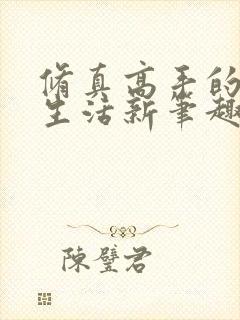 脩真高手的
生活新筆趣
陳璧君